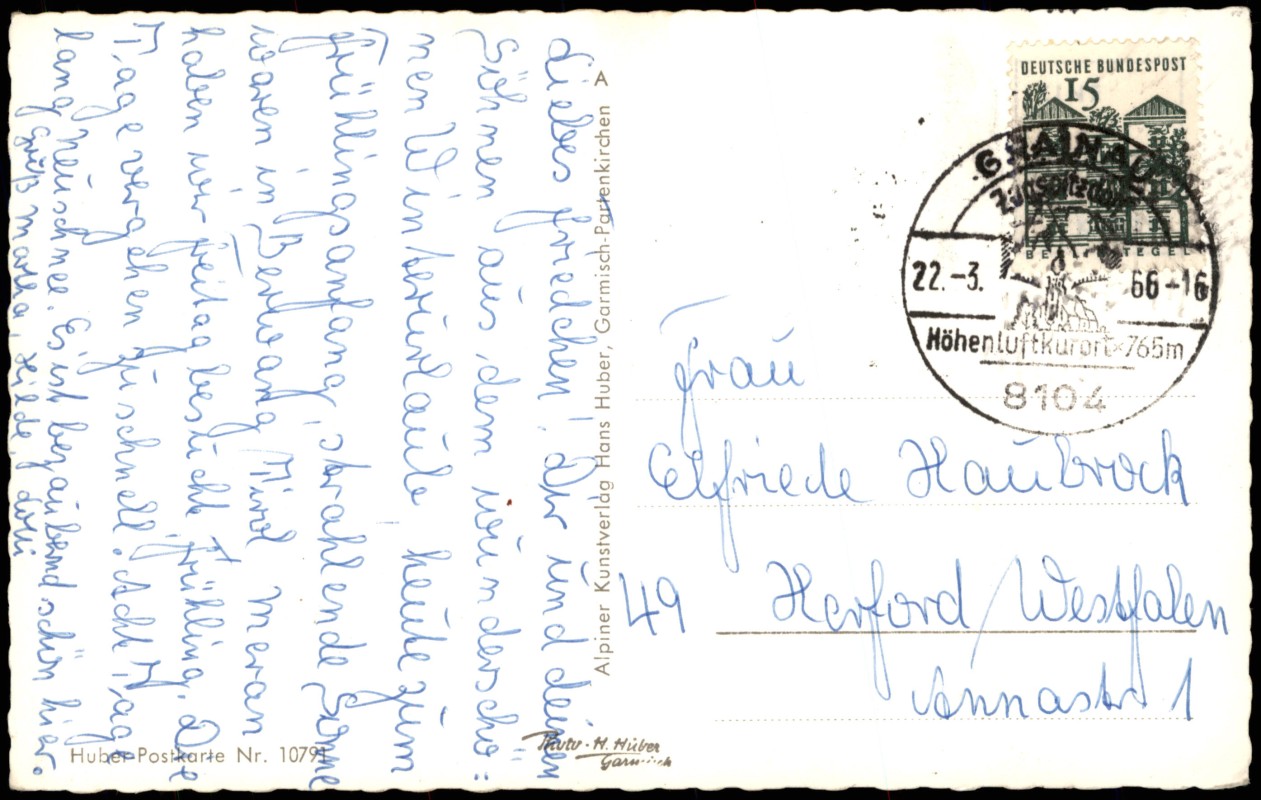 Liebes Friedchen! Dir und deinen
Söhnen aus dem wunderschö=
nen Winterurlaub, heute zum
Frühlingsanfang, strahlende Sonne
waren in Berwang Tirol Meran
haben wir Freitag besucht, Frühling. Die
Tage vergehen zu schnell. Acht Tage
lang Neuschnee. Es ist bezaubernd schön hier.
Gruß Martha, Hilde,
Alpiner Kunstverlag Hans Huber, Garmisch-Partenkirchen A
Huber-Postkarte Nr. 10791
Photo-H. Huber
Garmisch
DEUTSCHE BUNDESPOST
15
BERLIN TEGEL
GRAINAU
Zugspitzdorf
22.-3. 66-16
Höhenluftkurort 765m
8104
Frau
Elfriede Haubrock
49 Herford/Westfalen
Annastr 1